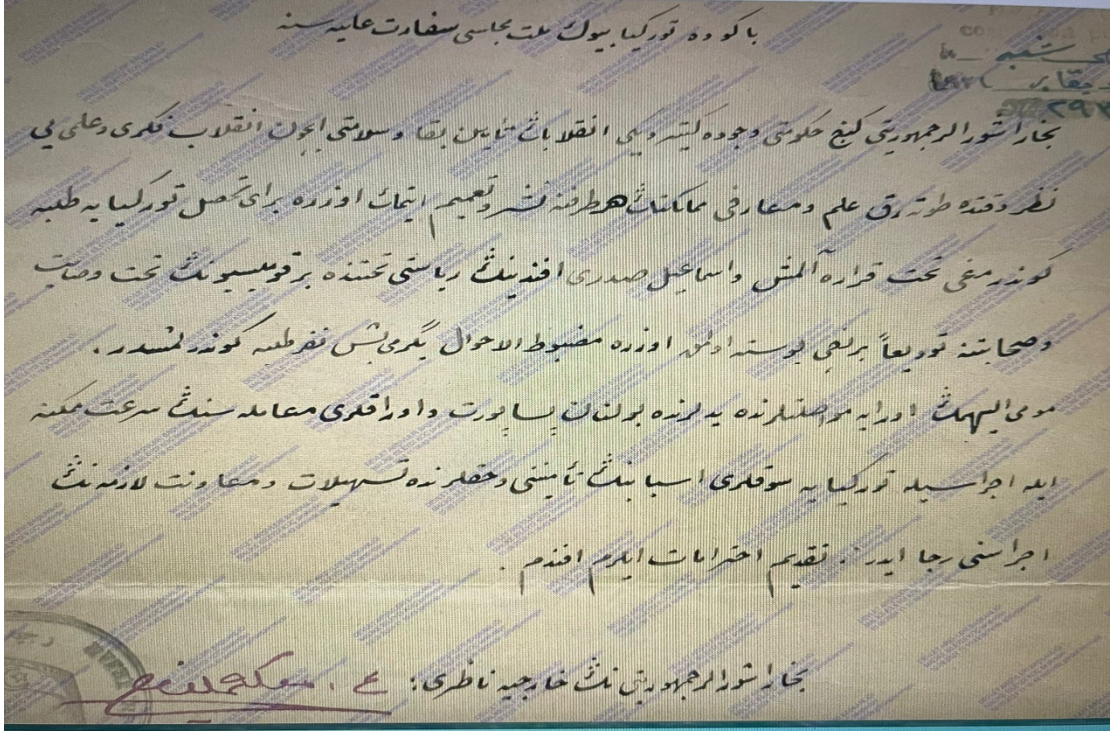 باكوده توركيا بيوك ملت مجلسى سفارت عليه سنه
٢٩٢
بخارا شورالر جمهوريتى گنج حكومتى وجوده كيتيرديكى انقلابڭ تأمين بقا و سلامتى ايچون انقلاب فكرى وعلمى يى
نظر دقتده طوته رق علم ومعارفى مملكتڭ هر طرفنه نشر وتعميم ايتمك اوزره براى تحصيل توركيايه طلبه
كوندرمغى تحت قراره آلمش واسماعيل صدرى افندينڭ رياستى تحتنده بر قوميسيونڭ تحت وصايت
وصحابتنه توديعاً برنجى پوسته اولمق اوزره مضبوط الاحوال يگرمى بش نفر طلبه كوندرلمشدر.
مومى اليهمڭ اورايه مواصلتلرنده يدلرنده بولنان پساپورت واوراقلرى معامله سنڭ سرعت ممكنه
ايله اجراسيله توركيايه سوقلرى اسبابنڭ تأمينى وحقلرنده تسهيلات ومعاونت لازمه نڭ
اجراسنى رجا ايدر. تقديم احترامات ايلرم افندم.
بخارا شورالر جمهوريتى نڭ خارجيه ناظرى: ع.